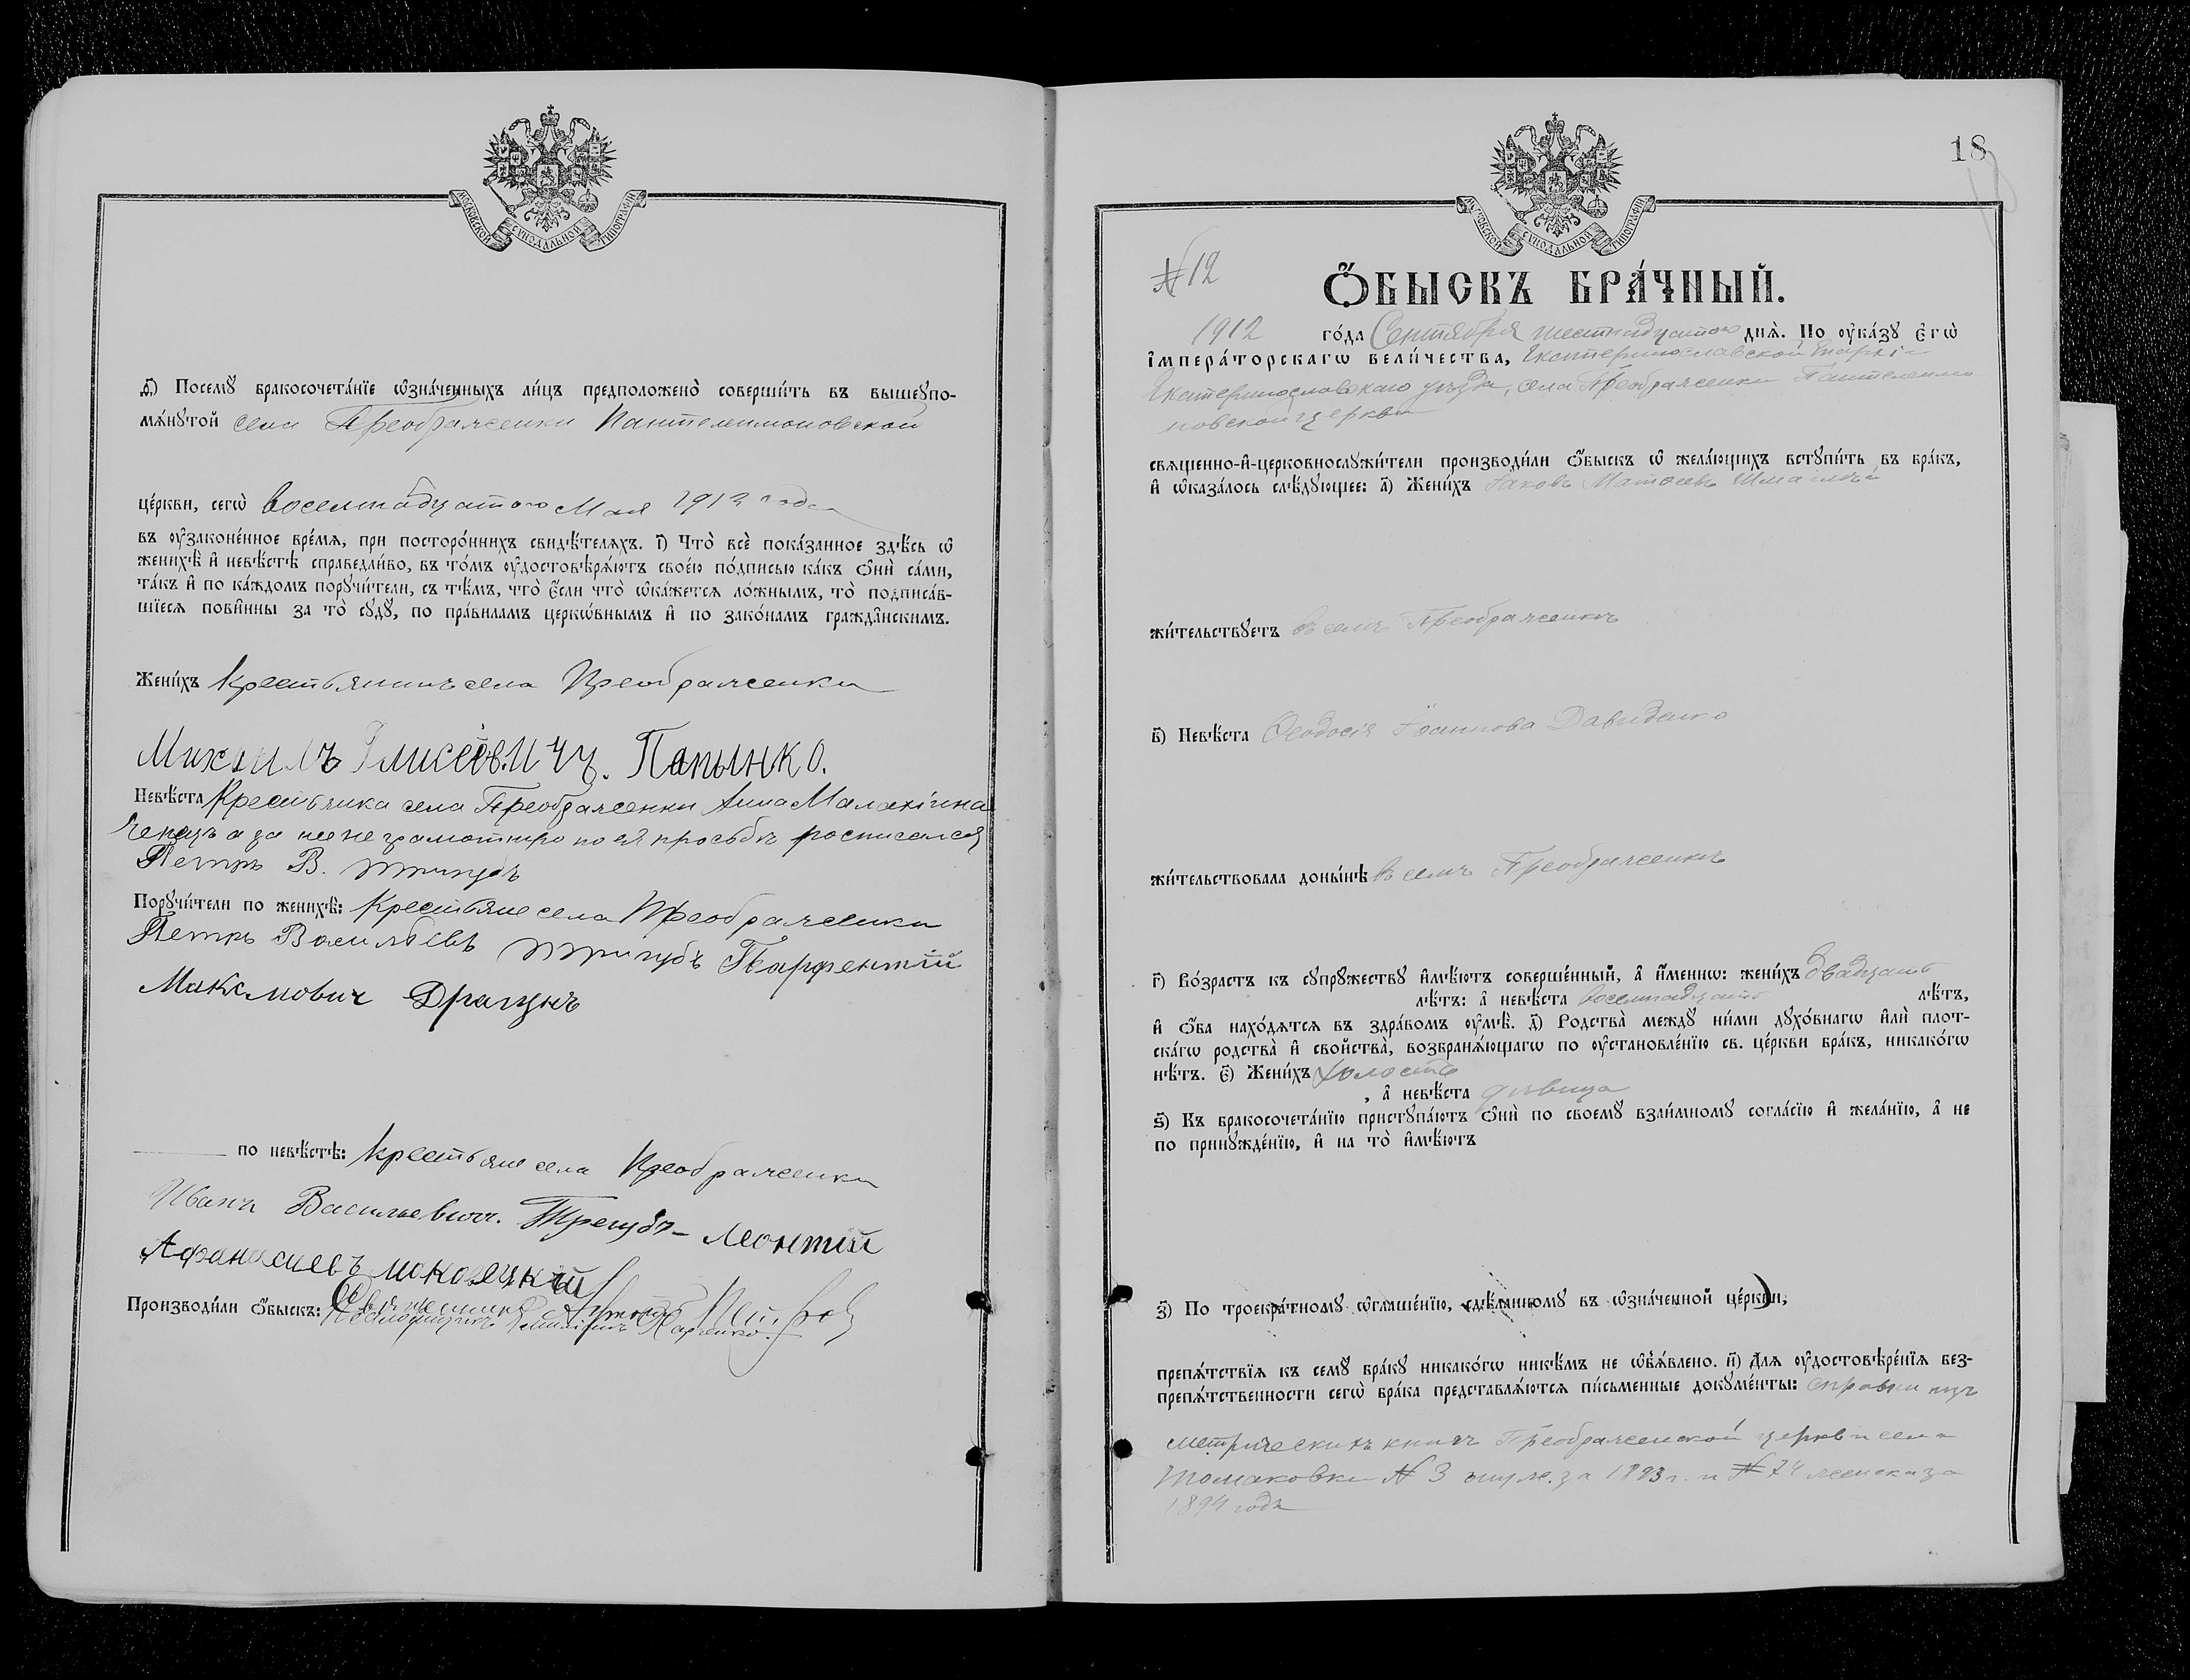 МОСКОВСКОЙ СѴНОДАЛЬНОЙ ТИПОГРАФІИ
д҃) Посемꙋ̀ бракосочета́нїе ѡ҆зна́ченныхъ ли́цъ предположено̀ соверши́ть въ вышеꙋпо-
мѧ́нꙋтой села Преображенки Пантелеимоновской
це́ркви, сегѡ̀ восемнадцатого Мая 1912 года
въ ѹ҆законе́нное вре́мѧ, при посторо́ннихъ свидѣ́телѧхъ. і҃) Что̀ всѐ пока́занное здѣ́сь ѡ҆
женихѣ̀ и҆ невѣ́стѣ справедли́во, въ то́мъ ѹ҆достовѣрѧ́ютъ свое́ю по́дписью ка́къ ѻ҆нѝ са́ми,
та́къ и҆ по ка́ждомъ порꙋчи́тели, съ тѣ́мъ, что̀ є҆́сли что̀ ѡ҆ка́жетсѧ ло́жнымъ, то̀ подписа́в-
шїесѧ пови́нны за то̀ сꙋдꙋ̀, по пра́виламъ церкѡ́внымъ и҆ по зако́намъ гражда́нскимъ.
Жени́хъ Крестьянинъ села Преображенки
Михаилъ Елисеевичъ. Папынко.
Невѣ́ста Крестьянка села Преображенки Анна Малахіина
а за нее неграмотную по ея просьбѣ росписался
Петръ В. Тригубъ
Порꙋчи́тели по женихѣ̀: Крестьяне села Преображенки
Петръ Васильевъ Тригубъ Парфентій
Максмович Драгунъ
по невѣ́стѣ: Крестьяне села Преображенки
Иванъ Васильевич. Трегубъ - Леонтій
Афанасиевъ
Производи́ли ѻ҆́быскъ: Священникъ
Псаломщикъ
МОСКОВСКОЙ СѴНОДАЛЬНОЙ ТИПОГРАФІИ
18
№ 12
Ѻ҆́БЫСКЪ БРА́ЧНЫЙ.
1912 го́да Сентября шестнадцатого днѧ̀. По ѹ҆ка́зꙋ є҆гѡ̀
і҆мпера́торскагѡ вели́чества, Екатеринославской Епархіи
Екатеринославскаго уѣзда, села Преображенки Пантелеимо
новской церкви
свѧщенно-и҆-церковнослꙋжи́тели производи́ли ѻ҆́быскъ ѡ҆ жела́ющихъ встꙋпи́ть въ бра́къ,
и҆ ѡ҆каза́лось слѣ́дꙋющее: а҃) Жени́хъ Іаковъ Матѳеевъ
жи́тельствꙋетъ въ селѣ Преображенкѣ
в҃) Невѣ́ста Ѳеодосія Іоаннова Давиденко
жи́тельствовала доны́нѣ въ селѣ Преображенкѣ
г҃) Во́зрастъ къ сꙋпрꙋжествꙋ и҆мѣ́ютъ соверше́нный, а҆ и҆́меннѡ: жени́хъ двадцать
лѣ́тъ: а҆ невѣ́ста восемнадцать лѣ́тъ,
и҆ ѻ҆́ба нахо́дѧтсѧ въ здра́вомъ ѹ҆мѣ̀. д҃) Родства̀ междꙋ̀ ни́ми дꙋхо́внагѡ и҆лѝ плот-
ска́гѡ родства̀ и҆ сво́йства, возбранѧ́ющагѡ по ѹ҆становле́нїю св. це́ркви бра́къ, никако́гѡ
нѣ́тъ. є҃) Жени́хъ холостъ
, а҆ невѣ́ста дѣвица
ѕ҃) Къ бракосочета́нїю пристꙋпа́ютъ ѻ҆нѝ по своемꙋ̀ взаи́мномꙋ согла́сїю и҆ жела́нїю, а҆ не
по принꙋжде́нїю, и҆ на то̀ и҆мѣ́ютъ
з҃) По троекра́тномꙋ ѡ҆глаше́нїю, сдѣ́ланномꙋ въ ѡ҆зна́ченной це́ркви,
препѧ́тствїѧ къ семꙋ̀ бра́кꙋ никако́гѡ никѣ́мъ не ѡ҆б̾ѧ́влено. и҃) Длѧ ѹ҆достовѣре́нїѧ без-
препѧ́тственности сегѡ̀ бра́ка представлѧ́ютсѧ пи́сьменные докꙋме́нты: справки изъ
метрическихъ книгъ Преображенской церкви села
Томаковки № 3 муж. за 1893 г. и № 74 женск. за
1894 годъ